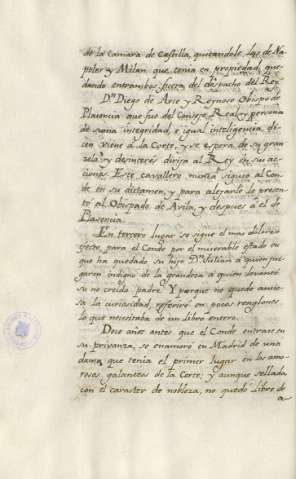 de la Camara de Castilla, quitandole las de Na-
poles y Milan que tenia en propiedad, que-
dando entrambos fuera del despacho del Rey.
Dn. Diego de Arze y Reynoso Obispo de
Plasencia que fue del Consejo Real, y persona
de suma integridad, e igual inteligencia, di-
cen viene â la Corte, y se espera, de su gran
zelo, y desinterés dirija al Rey en sus ac-
ciones. Este cavallero nunca siguio al Con-
de en su dictamen, y para alejarle le presen-
tó al Obispado de Avila, y despues â el de
Plasencia.
En tercero lugar se sigue el mas
efecto, para el Conde por el miserable estado en
que ha quedado su hijo Dn. Julian â quien juz-
garon indigno de la grandeza â quien levantó
su no creido padre. Y porque no quede ansio-
sa la curiosidad, referiré en pocos renglones
lo que necesitaba de un libro entero.
Doce años antes que el Conde entrase en
su privanza, se enamoró en Madrid de una
dama que tenia el primer lugar en los amo-
rosos galanteos de la Corte; y aunque sellada
con el caracter de nobleza, no quedó libre de
a